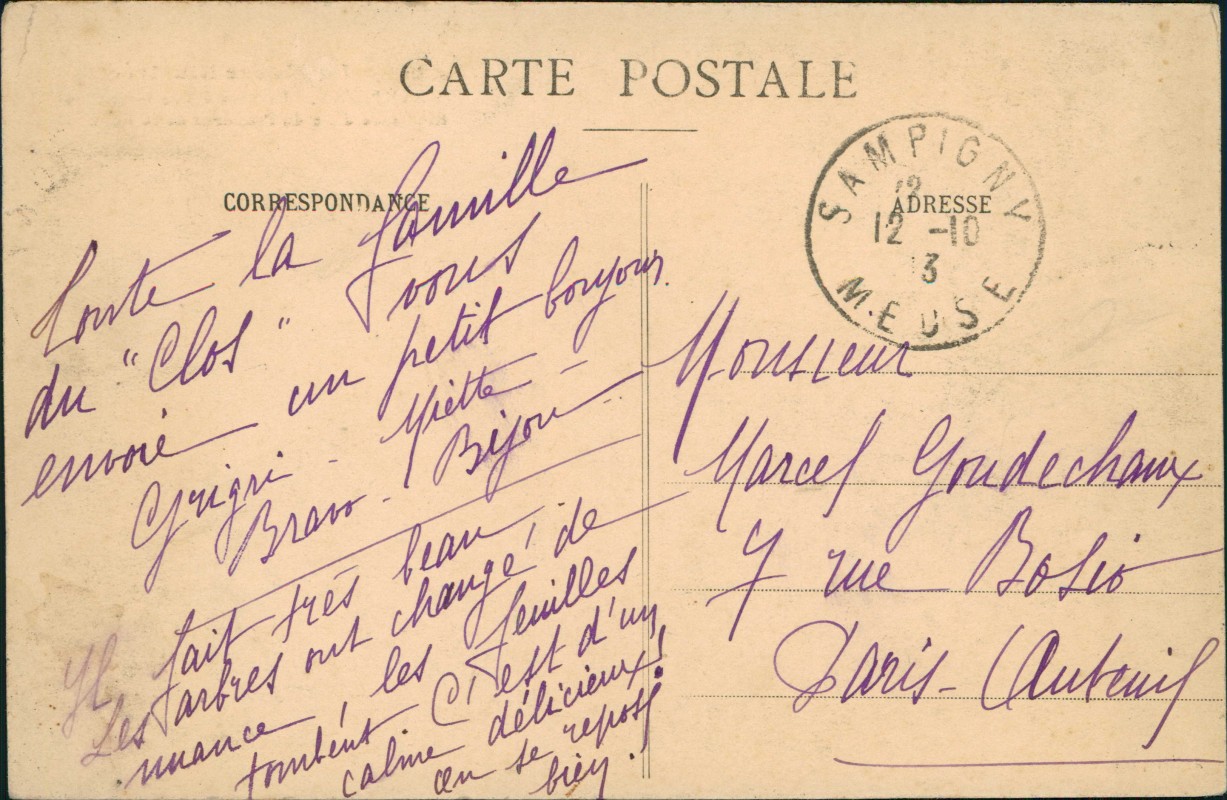 CARTE POSTALE
CORRESPONDANCE
ADRESSE
SAMPIGNY
12
12 -10
3
MEUSE
Toute la famille
du "Clos" vous
envoie un petit bonjour.
Grigri - Miette -
Bravo - Bijou
Il fait très beau
Les arbres ont changé de
nuance, les feuilles
tombent C'est d'un
calme délicieux!
on se repose
bien.
Monsieur
Marcel Goudechaux
7 rue Bosio
Paris - (Auteuil